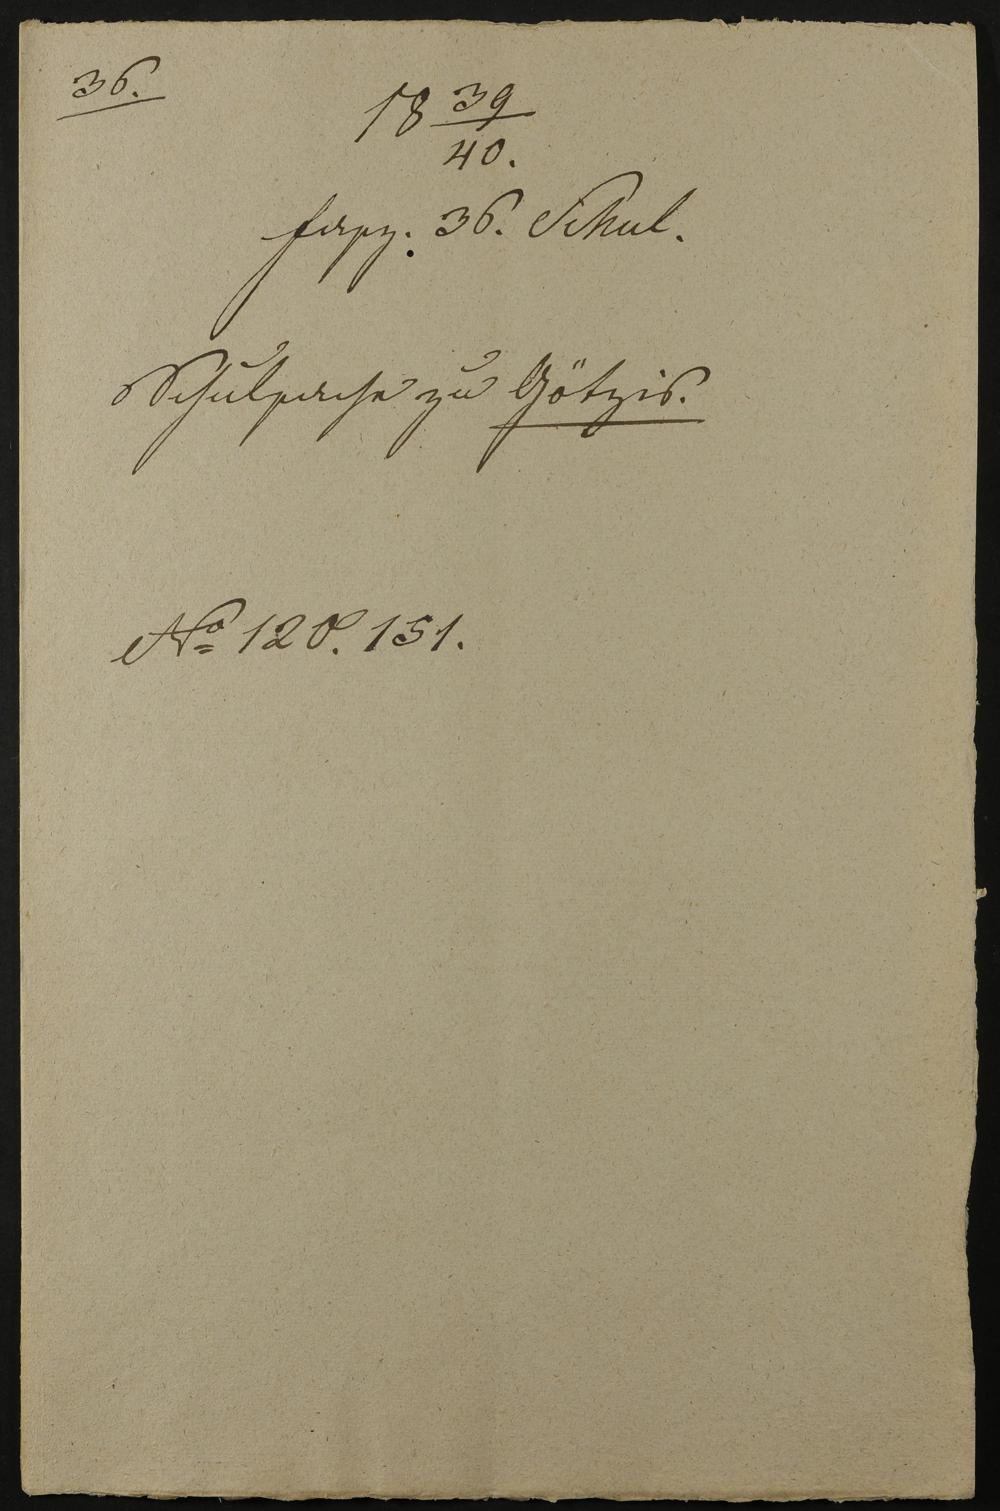 36.
18 39/40.
fasz. 36. Schul.
Schulsache zu Götzis.
No 128. 151.